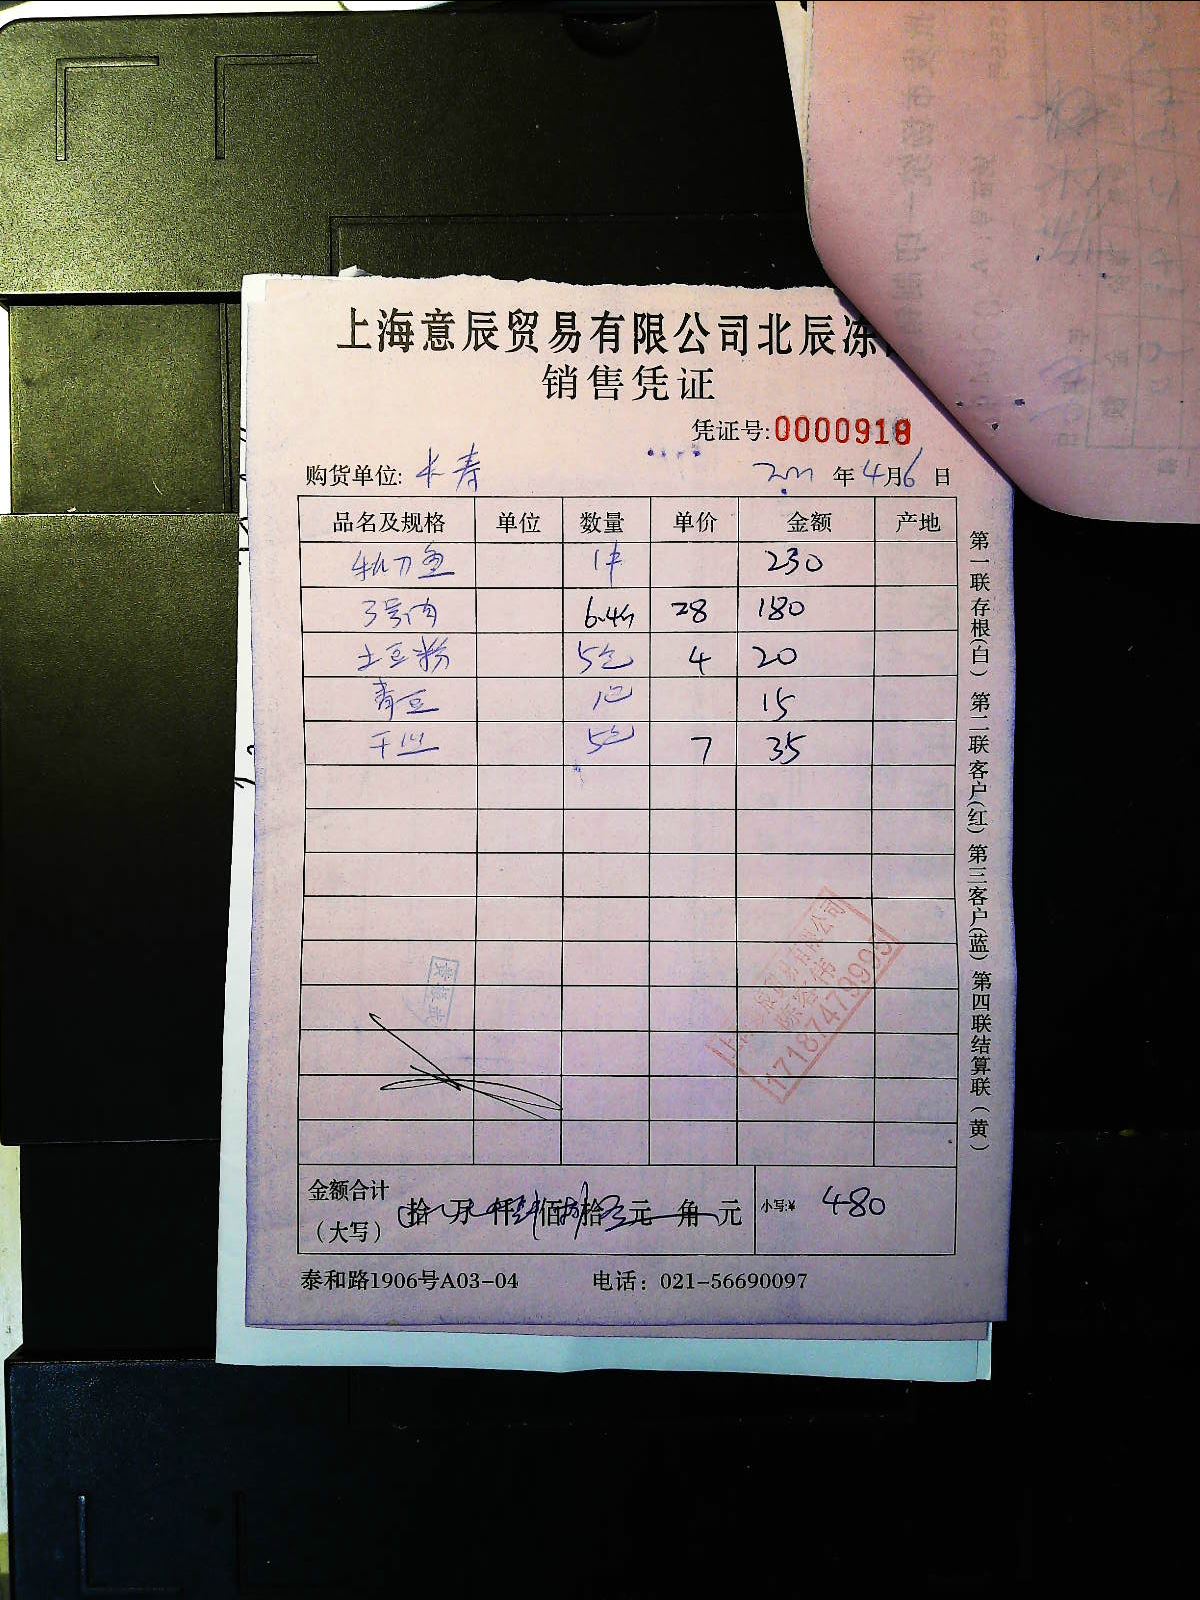 上海意辰贸易有限公司北辰冻
销售凭证
凭证号:0000918
购货单位: 长寿 年4月6日
品名及规格 单位 数量 单价 金额 产地
秋刀鱼 1件 230
3号肉 6.4斤 28 180
土豆粉 5包 4 20
青豆 1包 15
5包 7 35
陈客伟
17187479995
金额合计 拾 万 仟 佰 拾 元 角 元 小写:¥ 480
(大写)
泰和路1906号A03-04 电话: 021-56690097
第一联存根(白) 第二联客户(红) 第三客户(蓝) 第四联结算联(黄)